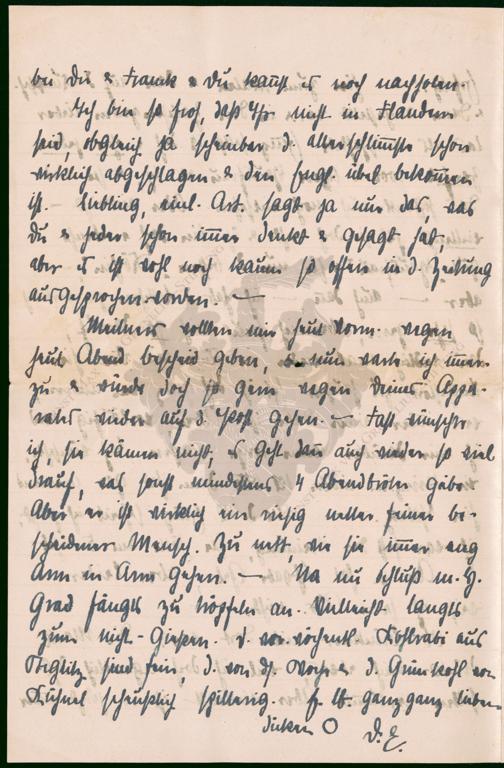 bei Du & Franck & Du kannst es noch nachholen.
Ich bin so froh, daß Ihr nicht in Flandern
seid, obgleich ja scheinbar d. allerschlimmste schon
wirklich abgeschlagen & den Engl. übel bekommen
ist. Liebling, einl. Art. sagt ja nur das, was
Du & jeder schon immer denkt & gesagt hat
aber es ist wohl noch kaum so offen in d. Zeitung
ausgesprochen worden. —
wollten mir heut Vorm. wegen
heut Abend bescheid geben, nun warte ich immer
zu & würde doch so gern wegen Deines Appa-
rates wieder auf d. Post gehen. — Fast wünschte
ich, sie kämen nicht, es geht dann auch wieder so viel
drauf, was sonst mindestens 4 Abendbröter gäbe
Aber er ist wirklich ein riesig netter feiner be-
scheidener Mensch. Zu nett, wie sie immer eng
Arm in Arm gehen. — Na nu Schluß m. H.
Grad fängts zu tröpfeln an. Vielleicht langts
zum nicht-Gießen. d. vor. wöchentl. Kohlrabi aus
Steglitz sind fein, d. von ds. Woche & d. Grünkohl von
scheußlich spillerig. ganz ganz lieben
dicken O D. E.